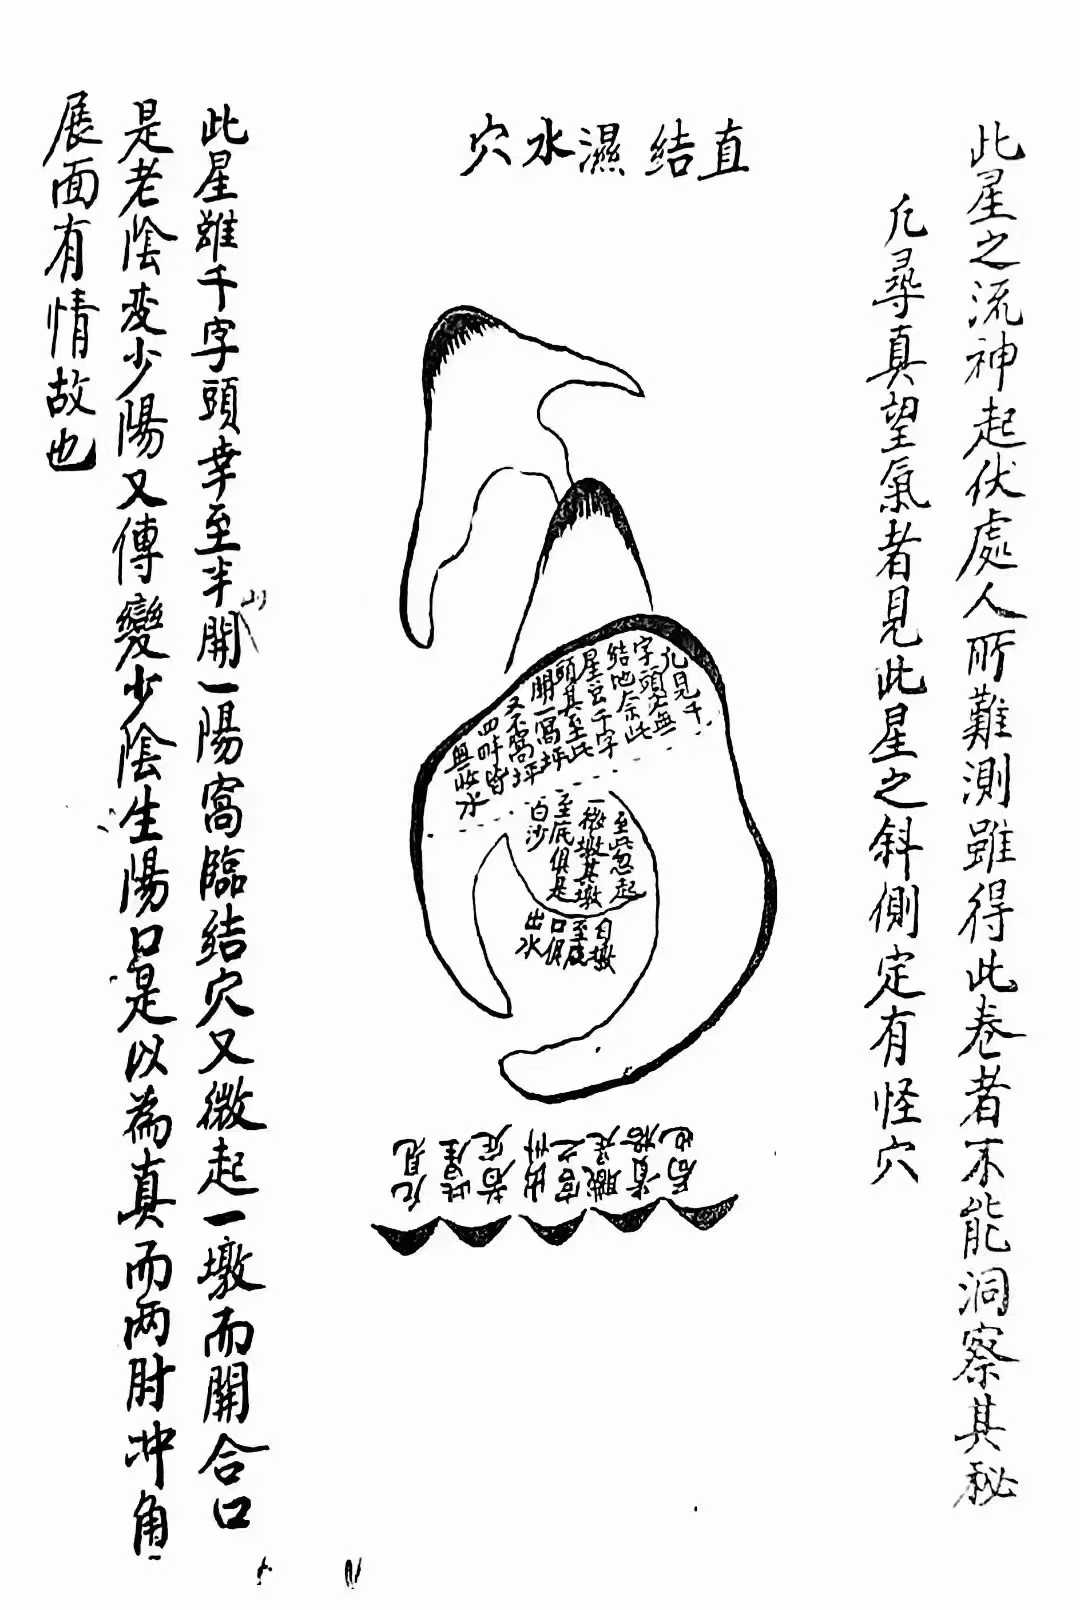 此星之流神起伏處人所難測雖得此卷者不能洞察其秘
凡尋真望氣者見此星之斜側定有怪穴
直結濕水穴
凡見千
字頭定無
結地奈此
星豈千字
頭其至此
開一窩坪
又不窩坪
四畔皆
無收水
至此忽起
一微墩其墩
至底俱是
白沙
自墩
至底
口俱
出水
凡見
此星
若定
出州
官之
職是
後也
此星雖千字頭幸至半開一陽窩臨結穴又微起一墩而開合口
是老陰变少陽又傳變少陰生陽口是以為真而两肘冲角
展面有情故也